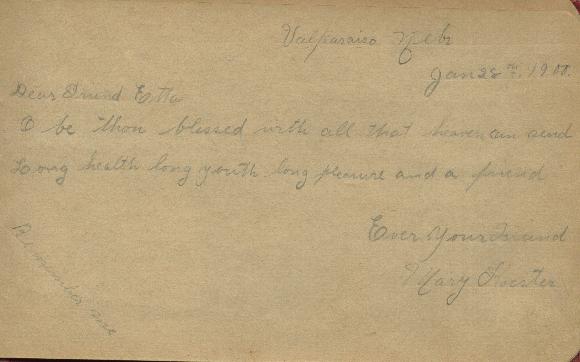 Valparaiso Nebr
Jan 28th, 1908.
Dear Friend Etta
O be thou blessed with all that heaven can send
Long health long youth long pleasure and a friend
Ever Your Friend
Mary
Remember me